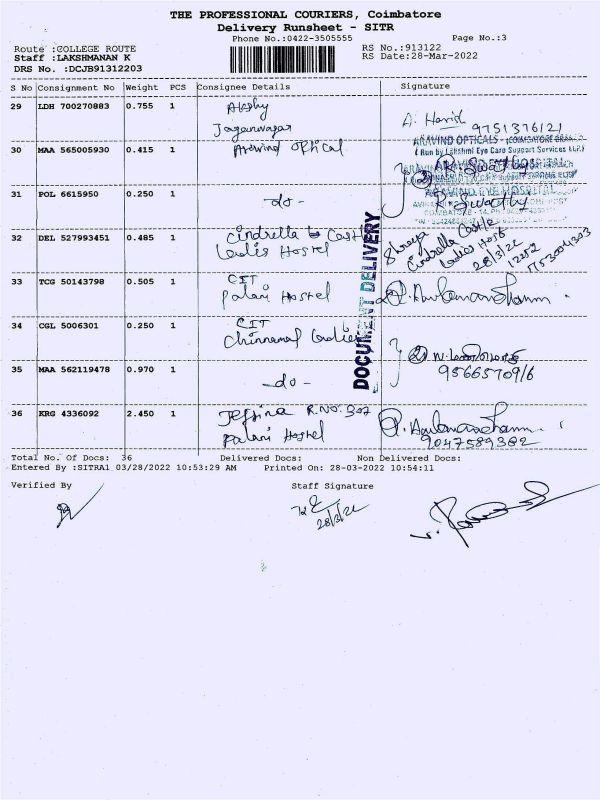 THE PROFESSIONAL COURIERS, Coimbatore
Delivery Runsheet - SITR
Phone No.:0422-3505555 Page No.:3
Route :COLLEGE ROUTE RS No.:913122
Staff :LAKSHMANAN K RS Date:28-Mar-2022
DRS No. :DCJB91312203
S No Consignment No Weight PCS Consignee Details Signature
29 LDH 700270883 0.755 1 Jaganwagar A. Harid 9751376121
30 MAA 565005930 0.415 1 Arivind Optical
ARAVIND OPTICALS
( Run by Lakshmi Eye Care Support Services LLP.)
ARAVIND EYE HOSPITAL
31 POL 6615950 0.250 1 -do-
ARAVIND EYE HOSPITAL
Swathy
32 DEL 527993451 0.485 1 Cindrella Castle Ladies Hostel
Shreya
Cindrella Castle
Ladies Host
28/3/22
DOCUMENT DELIVERY
33 TCG 50143798 0.505 1 CIT Palani Hostel
34 CGL 5006301 0.250 1 CIT Chinnamal Ladies
35 MAA 562119478 0.970 1 -do-
36 KRG 4336092 2.450 1 Jeffina R.NO. 307 Palani Hostel 9047589382
Total No. Of Docs: 36 Delivered Docs: Non Delivered Docs:
Entered By :SITRA1 03/28/2022 10:53:29 AM Printed On: 28-03-2022 10:54:11
Verified By Staff Signature
28/3/22